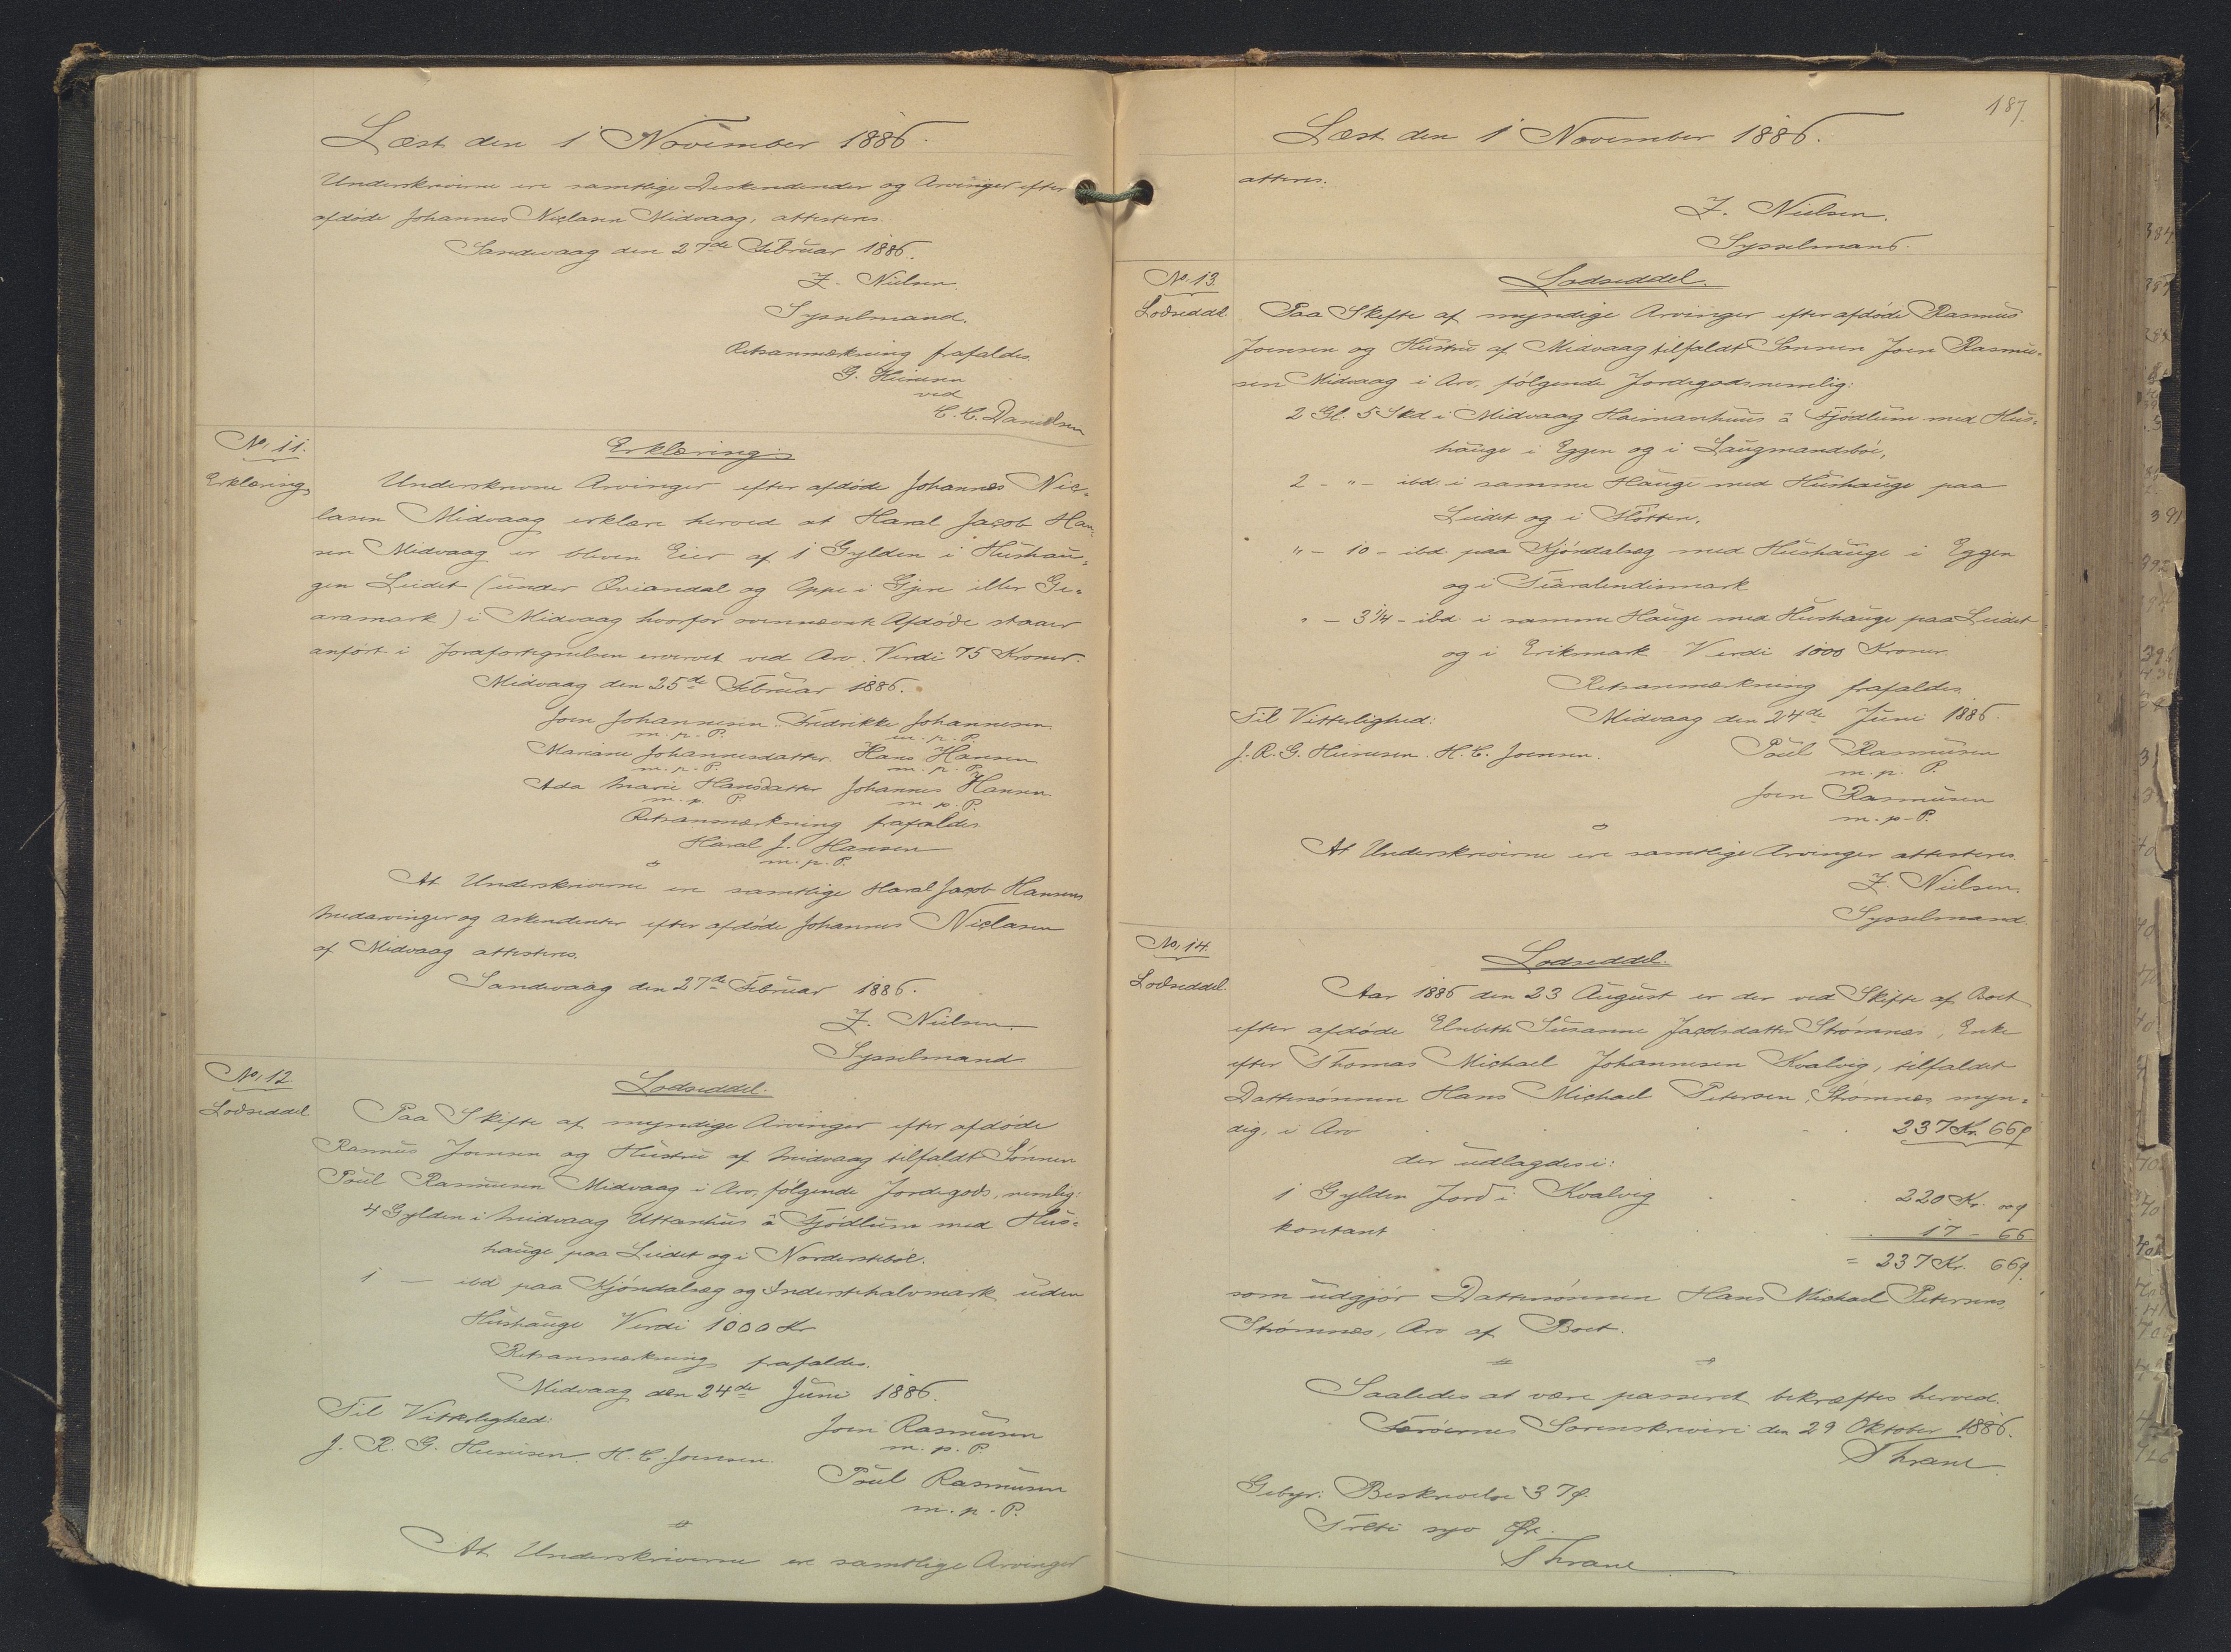 Læst den 1 November 1886.
Underskriverne ere samtlige Deskendender og Arvinger efter
afdøde Johannes Niclasen Midvaag, attesteres.
Sandevaag den 27de Februar 1886.
Z. Nielsen.
Sysselmand.
Retsanmærkning frafaldes.
G. Heinesen
ved
C. C. Danielsen
No. 11.
Erklæring
Erklæring.
Underskrevne Arvinger efter afdøde Johannes Nic-
lasen Midvaag erklære herved at Haral Jacob Han-
sen Midvaag er bleven Eier af 1 Gylden i Hushau-
gen Leidet (under Oviandal og Oppe i Gjere eller Ge-
aramark) i Midvaag hvorfor ovennævnte Afdøde staaer
anført i Jordfortegnelsen ervervet ved Arv. Verdi 75 Kroner.
Midvaag den 25de Februar 1886.
Joen Johannesen. Fredrikke Johannesen.
m. p. P. m. p. P.
Mariane Johannesdatter. Hans Hansen.
m. p. P. m. p. P.
Ada Marie Hansdatter Johannes Hansen.
m. p. P. m. p. P.
Retsanmærkning frafaldes.
Haral J. Hansen
m. p. P.
At Underskriverne ere samtlige Haral Jacob Hansens
Medarvinger og askendenter efter afdøde Johannes Niclasen
af Midvaag attesteres.
Sandevaag den 27de Februar 1886.
Z. Nielsen.
Sysselmand.
No. 12.
Lodseddel
Lodseddel.
Paa Skifte af myndige Arvinger efter afdøde
Rasmus Joensen og Hustru af Midvaag tilfaldt Sønnen
Poul Rasmussen Midvaag i Arv, følgende Jordegods, nemlig:
4 Gylden i Midvaag Uttanhus à Fjødlum med Hus-
hauge paa Leidet og i Norderstebøe.
1 — ibd paa Kjøndalseg og Inderstehalvmark uden
Hushauge Verdi 1000 Kr
Retsanmærkning frafaldes.
Midvaag den 24de Juni 1886.
Til Vitterlighed: Joen Rasmussen
J. R. G. Heinesen. H. C. Joensen. m. p. P.
Poul Rasmussen
m. p. P.
At Underskriverne ere samtlige Arvinger
187.
Læst den 1 November 1886.
atteres.
Z. Nielsen.
Sysselmand.
No. 13.
Lodseddel.
Lodseddel.
Paa Skifte af myndige Arvinger efter afdøde Rasmus
Joensen og Hustru af Midvaag tilfaldt Sønnen Joen Rasmu-
sen Midvaag i Arv, følgende Jordegods nemlig:
2 Gl. 5 Skd i Midvaag Heimanhuus à Fjødlum med Hus-
hauge i Eggen og i Laugmandsbøe,
2 - " - ibd. i samme Hauge med Hushauge paa
Leidet og i Fløtten,
" - 10 - ibd. paa Kjøndalseg med Hushauge i Eggen
og i Tiaralendismark
" - 3 1/4 - ibd i samme Hauge med Hushauge paa Leidet
og i Eriksmark Verdi 1000 Kroner.
Retsanmærkning frafaldes.
Til Vitterlighed: Midvaag den 24de Juni 1886.
J. R. G. Heinesen. H. C. Joensen. Poul Rasmussen
m. p. P.
Joen Rasmussen
m. p. P.
At Underskriverne ere samtlige Arvinger attesteres.
Z. Nielsen.
Sysselmand.
No. 14.
Lodseddel.
Lodseddel.
Aar 1886 den 23 August er der ved Skifte af Boet
efter afdøde Elsebeth Susanne Jacobsdatter Strømnæs, Enke
efter Thomas Michael Johannesen Kvalvig, tilfaldet
Dattersønnen Hans Michael Petersen, Strømnæs, myn-
dig, i Arv 237 Kr. 66ø
der udlagdes i:
1 Gylden Jord i Kvalvig 220 Kr. 00ø
kontant 17 - 66
= 237 Kr. 66ø
som udgjør Dattersønnen Hans Michael Petersens,
Strømnæs, Arv af Boet.
Saaledes at være passeret bekræftes herved.
Færøernes Sorenskriveri den 29 Oktober 1886.
Thrane
Gebyr: Beskrivelse 37ø.
Treti syv Øre.
Thrane